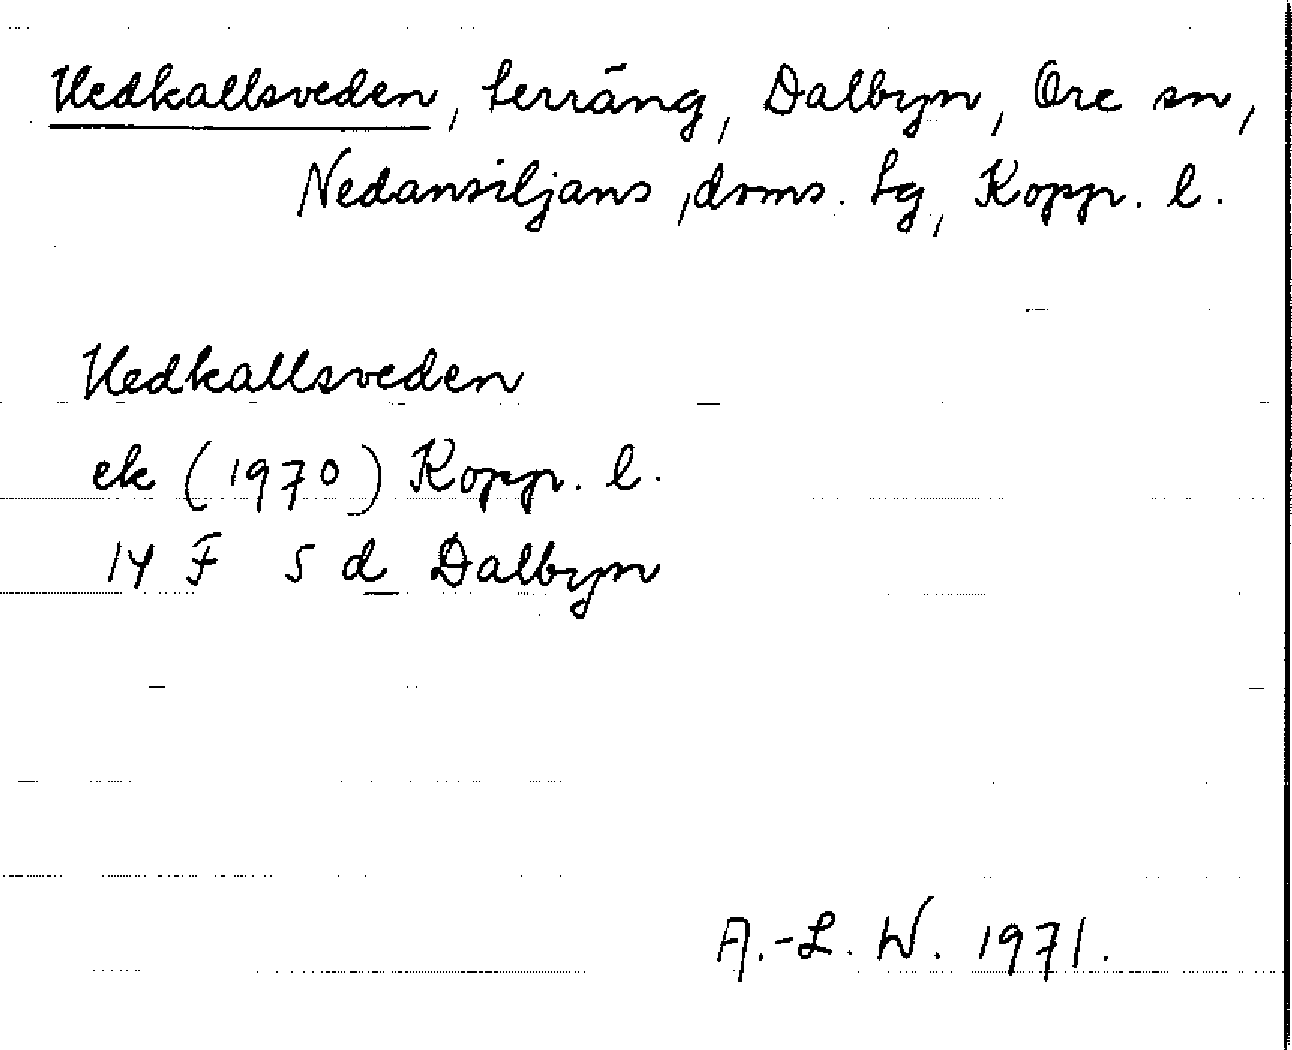 Hedkallsveden, terräng, Dalbyn, Ore sn,
Nedansiljans doms. tg, Kopp. l.
Hedkallsveden
ek (1970) Kopp. l.
14 F 5 d Dalbyn
A.-L. W. 1971.